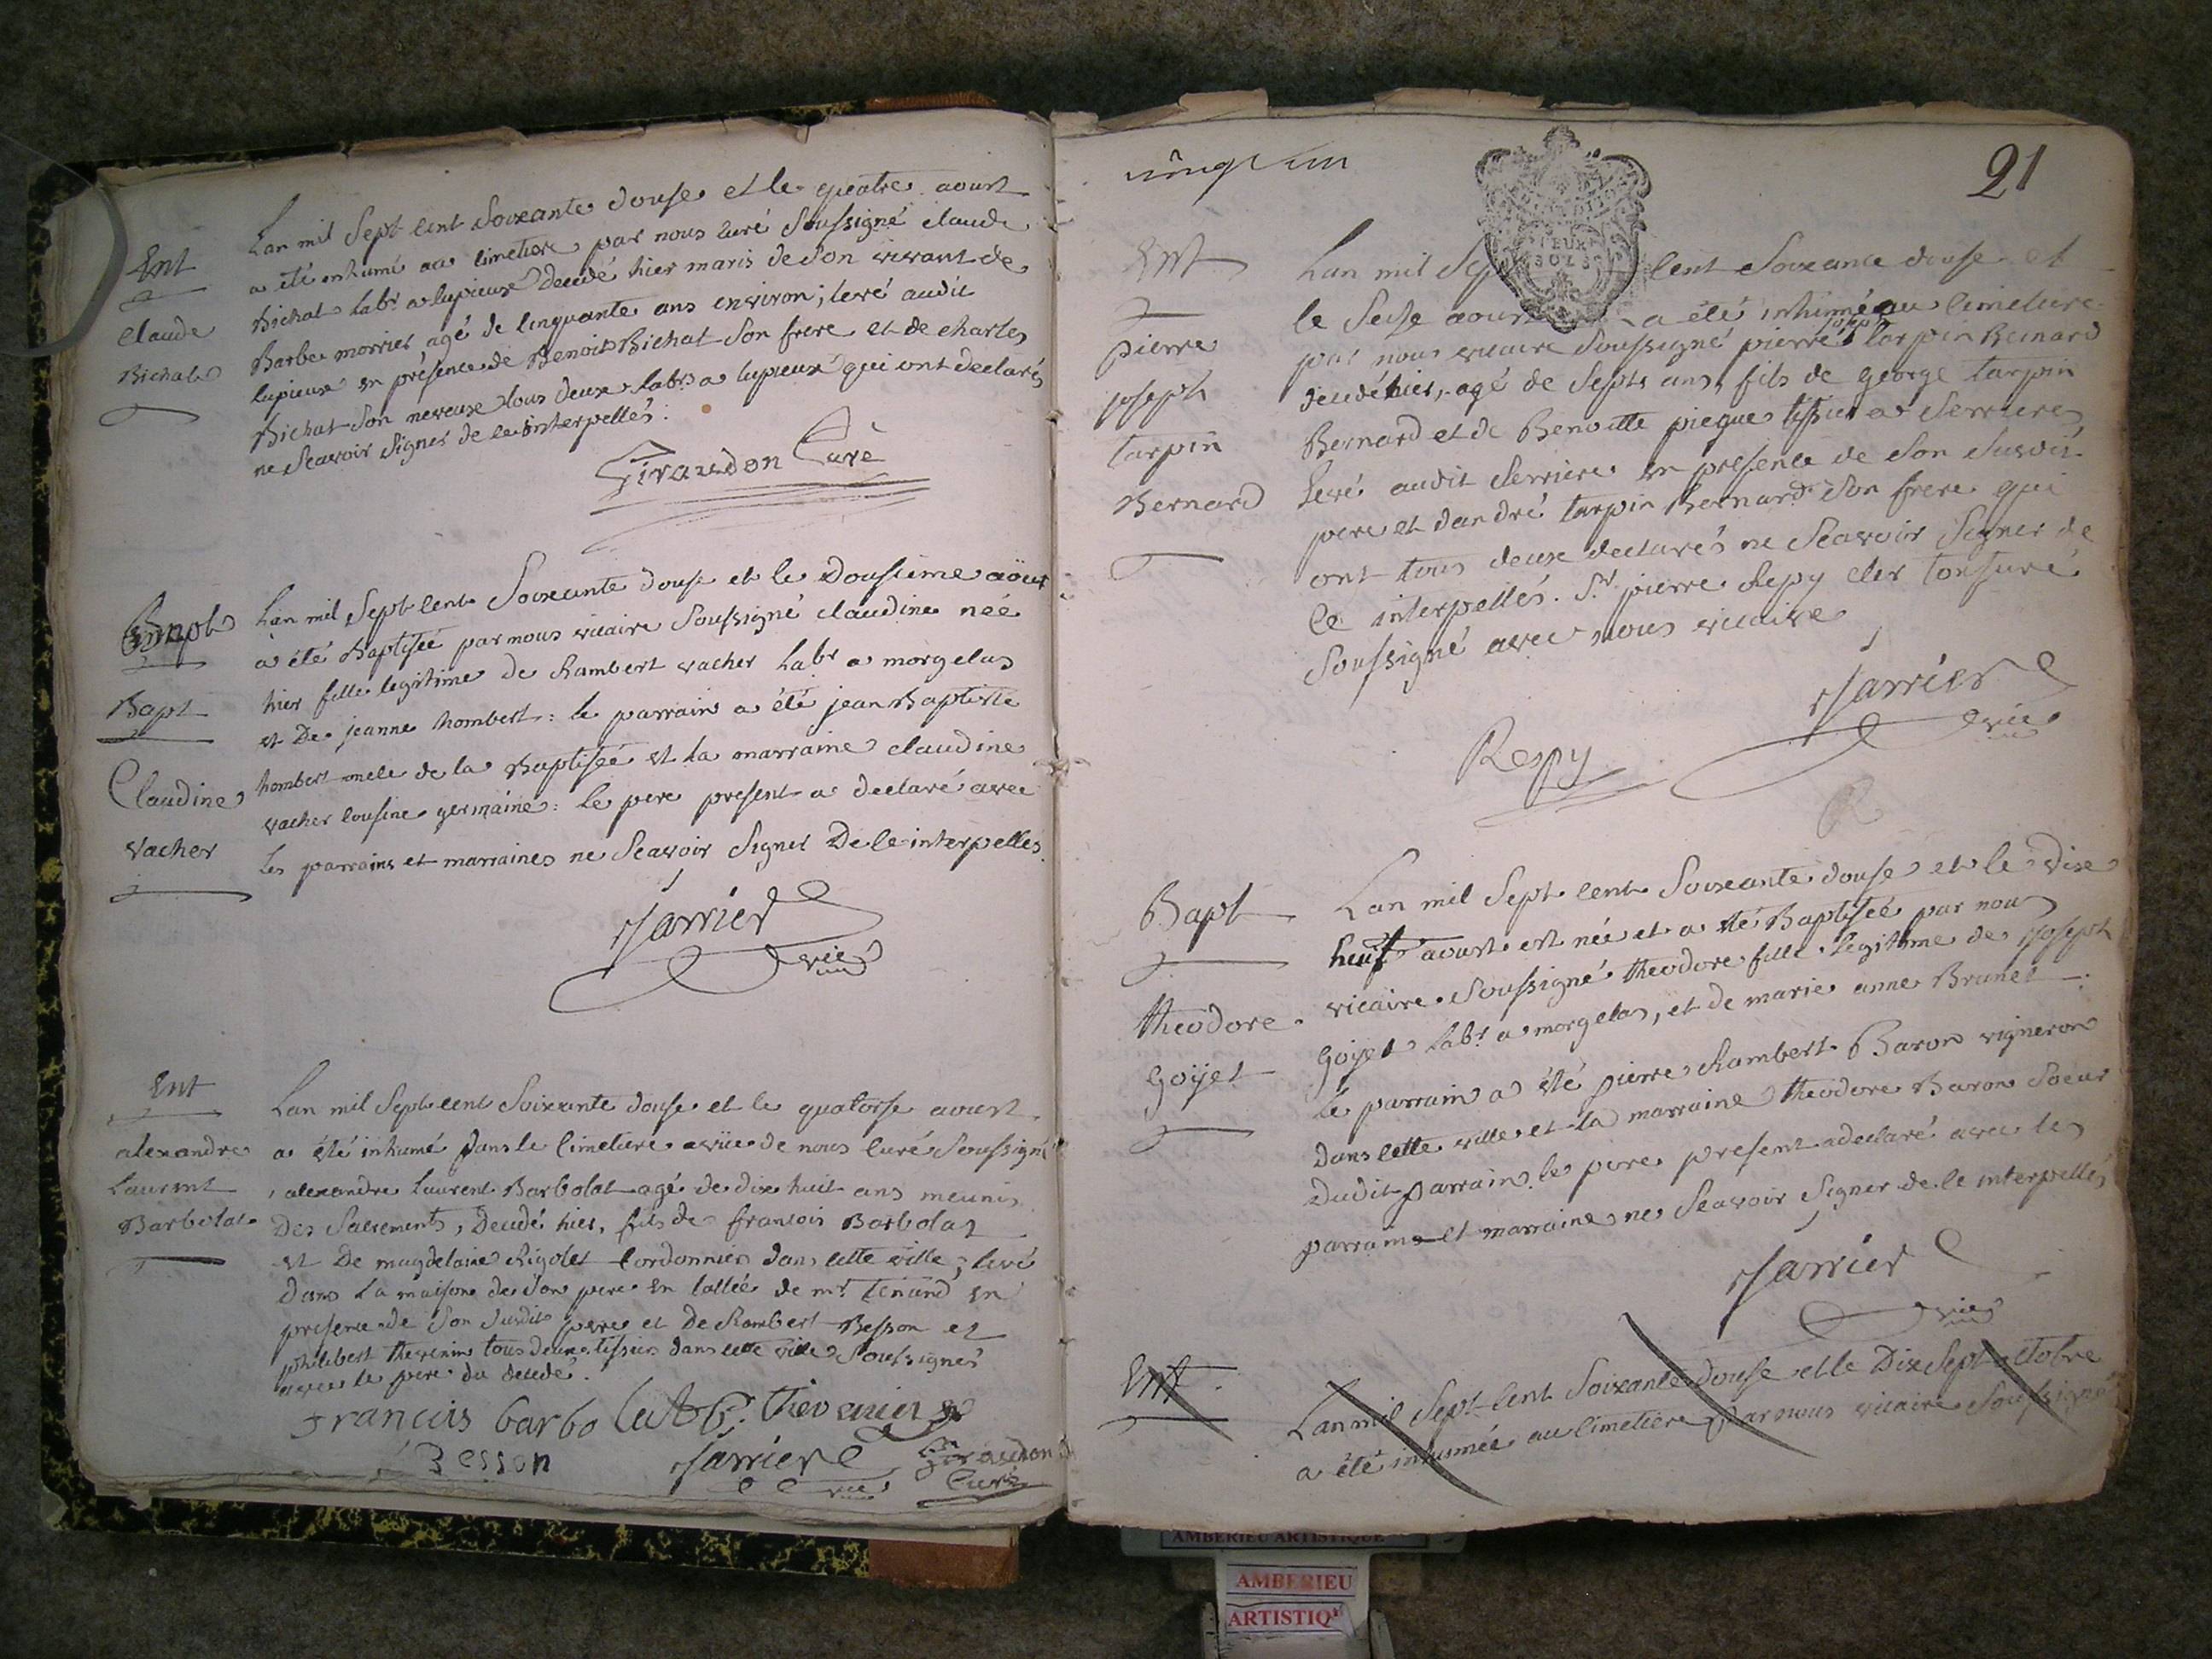 Ent
Claude
Bichat
Lan mil Sept Cent Soixante douse et le quatre aoust
a été inhumé au Cimetiere par nous Curé Soussigné Claude
Bichat Labr a lupieux decedé hier maris de son vivant de
Barbe morrier agé de Cinquante ans environ ; levé audit
lupieux en présence de Benoit Bichat Son frere et de charles
Bichat Son neveux tous deux labrs a lupieux qui ont declarés
ne Scavoir Signer de ce interpellés.
Giraudon Curé
Bapt
Claudine
vacher
Lan mil Sept Cent Soixante douse et le Dousieme aoust
a été Baptisée par nous vicaire Soussigné claudine née
hier fille legitime de Rambert vacher Labr a morgelas
et De jeanne hombert : le parrain a été jean Baptiste
hombert oncle de la Baptisée et la marraine claudine
vacher Cousine germaine : le pere present a declaré avec
Les parrains et marraines ne Scavoir Signer De ce interpelles.
Jarrier
vic
Ent
alexandre
Laurent
Barbolat
Lan mil Sept Cent Soixante douse et le quatorse aoust
a été inhumé Dans le Cimetiere a vüe de nous Curé Soussigné
, alexandre Laurent Barbolat agé de dix huit ans meunis
Des Sacrements, Decedé hier, fils de francois Barbolat
et De magdelaine Rigolet Cordonnier dans cette ville ; levé
dans La maison de Son pere en lallée de mr tenand en
presence de Son Susdit pere et De Rambert Besson et
philibert thevenin tous deux tissiers dans cette ville Soussignés
avec le pere du decedé.
francois barbolat p. thevenin
Besson Jarrier vic Giraudon
Curé
vingt un
21
Ent
pierre
joseph
tarpin
Bernard
Lan mil Sept Cent Soixante douse et
le Seise aoust a été inhimé au Cimetiere
joseph
par nous vicaire Soussigné pierre tarpin Bernard
decedé hier, agé de Septs ans, fils de george tarpin
Bernard et de Benoitte pieque tissier a Serriere
Levé audit Serriere en presence de Son Susdit
pere et dandré tarpin Bernard Son frere qui
ont tous deux declarés ne Scavoir Signer de
Ce interpellés. Sr pierre Repy cler tonsuré
Soussigné avec nous vicaire
Jarrier
vic
Repy
Bapt
theodore
Goÿet
Lan mil Sept Cent Soixante douse et le Dix
heuf aoust est née et a été Baptisée par nous
vicaire Soussigné theodore fille legitime de joseph
Goÿet Labr a morgelas, et de marie anne Brunet.
Le parrain a été pierre Rambert Baron vigneron
Dans cette ville et la marraine theodore Baron Soeur
Dudit parrain. le pere present a declaré avec les
parrains et marraine ne Scavoir Signer de ce interpellés
Jarrier
vic
Ent
Lan mil Sept Cent Soixante douse et le Dix Sept octobre
a été inhumée au Cimetiere par nous vicaire Soussigné
AMBERIEU ARTISTIQUE
AMBERIEU
ARTISTIQ